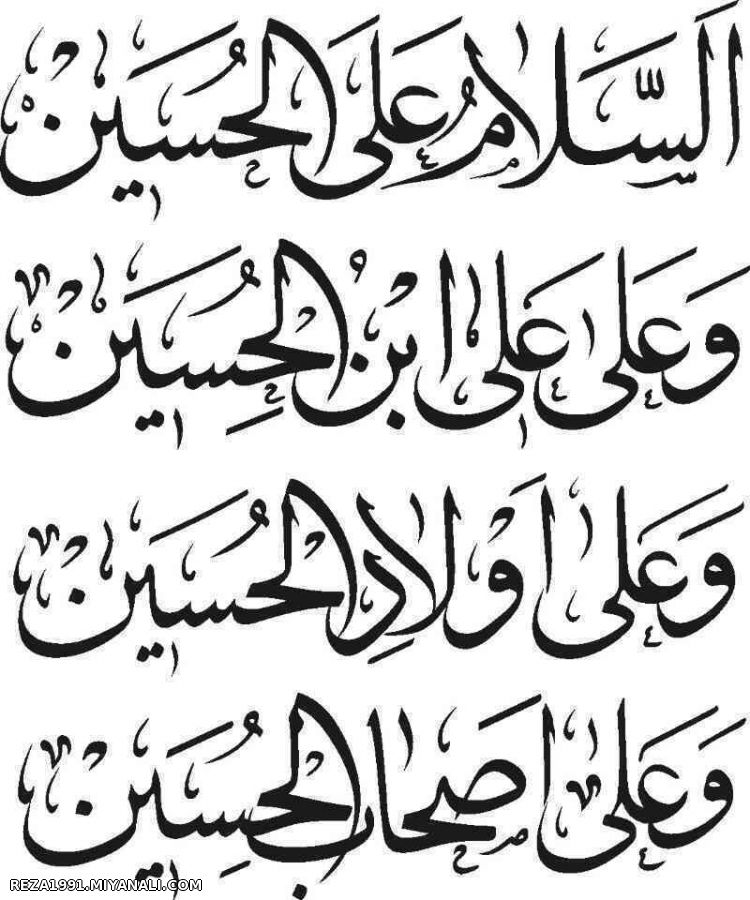 اَلسَّلامُ عَلَی الحُسَین
وَعَلی عَلی ابنِ الحُسِین
وَعَلی اَولادِ الحُسَین
وَعَلی اَصحاب الحُسِین
REZA1991.MIYANALI.COM